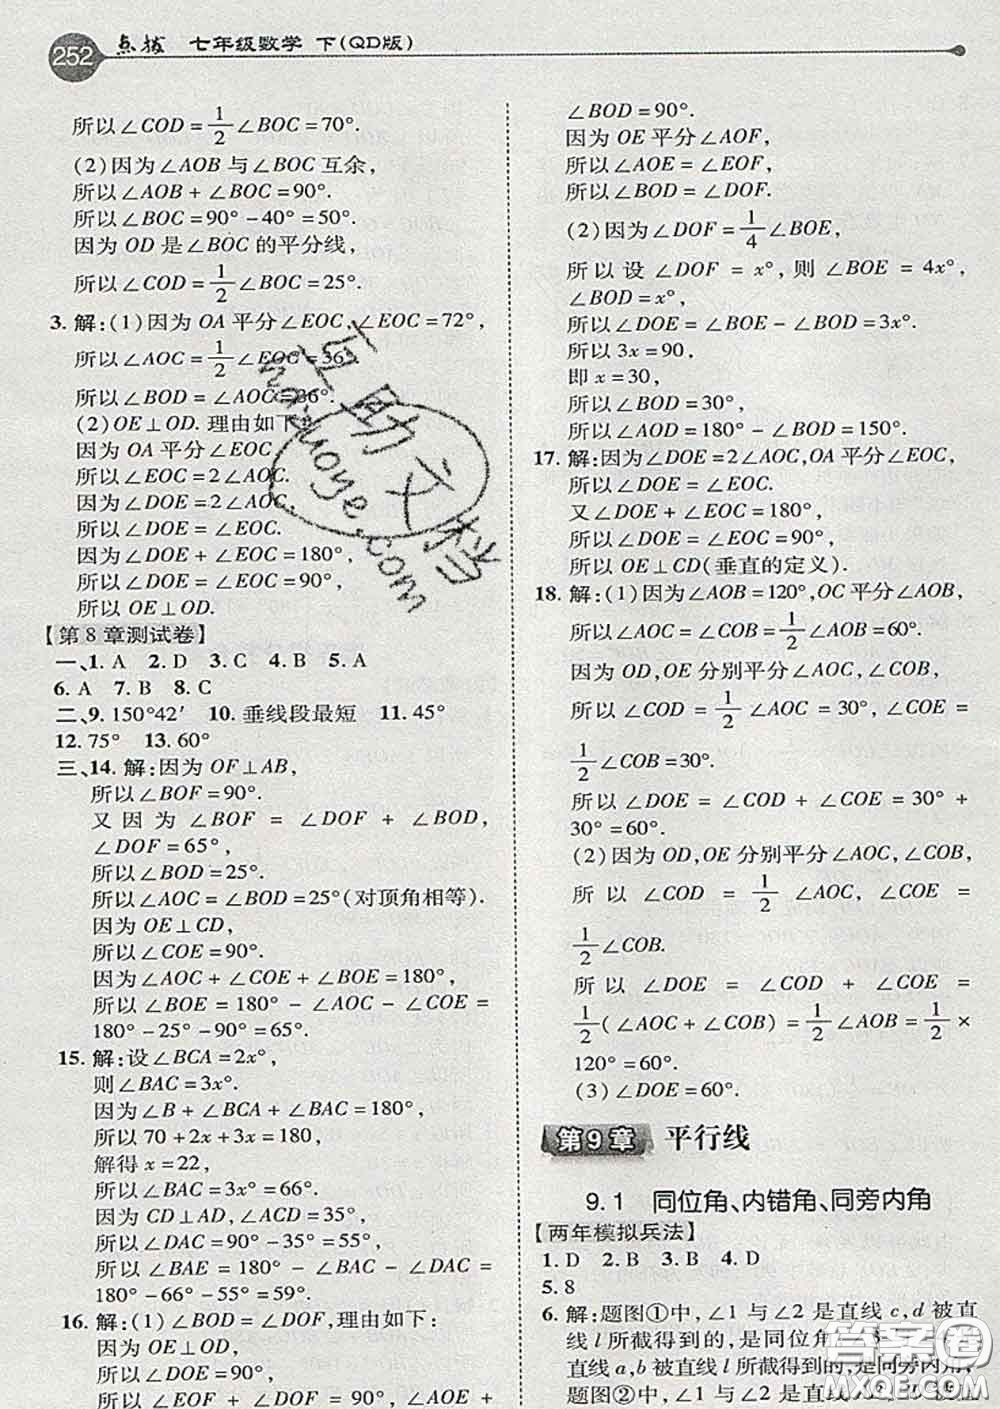 252 点拨 七年级数学 下(QD版)
所以∠COD=1/2∠BOC=70°.
(2)因为∠AOB与∠BOC互余,
所以∠AOB+∠BOC=90°.
所以∠BOC=90°-40°=50°.
因为OD是∠BOC的平分线,
所以∠COD=1/2∠BOC=25°.
3. 解:(1)因为OA平分∠EOC,∠EOC=72°,
所以∠AOC=1/2∠EOC=36°.
所以∠BOD=∠AOC=36°.
(2)OE⊥OD. 理由如下:
因为OA平分∠EOC,
所以∠EOC=2∠AOC.
因为∠DOE=2∠AOC,
所以∠DOE=∠EOC.
因为∠DOE+∠EOC=180°,
所以∠DOE=∠EOC=90°,
所以OE⊥OD.
【第8章测试卷】
一、1. A 2. D 3. C 4. B 5. A
6. A 7. B 8. C
二、9. 150°42′ 10. 垂线段最短 11. 45°
12. 75° 13. 60°
三、14. 解:因为OF⊥AB,
所以∠BOF=90°.
又因为∠BOF=∠DOF+∠BOD,
∠DOF=65°,
所以∠BOD=25°.
所以∠AOC=∠BOD=25°(对顶角相等).
因为OE⊥CD,
所以∠COE=90°.
因为∠AOC+∠COE+∠BOE=180°,
所以∠BOE=180°-∠AOC-∠COE=
180°-25°-90°=65°.
15. 解:设∠BCA=2x°,
则∠BAC=3x°.
因为∠B+∠BCA+∠BAC=180°,
所以70+2x+3x=180,
解得x=22,
所以∠BAC=3x°=66°.
因为CD⊥AD,∠ACD=35°,
所以∠DAC=90°-35°=55°,
所以∠BAE=180°-∠BAC-∠DAC=
180°-66°-55°=59°.
16. 解:(1)∠BOD=∠DOF,理由如下:
因为OD⊥OE,
所以∠EOF+∠DOF=90°,∠AOE+
∠BOD=90°.
因为OE平分∠AOF,
所以∠AOE=∠EOF,
所以∠BOD=∠DOF.
(2)因为∠DOF=1/4∠BOE,
所以设∠DOF=x°,则∠BOE=4x°,
∠BOD=x°.
所以∠DOE=∠BOE-∠BOD=3x°.
所以3x=90,
即x=30,
所以∠BOD=30°,
所以∠AOD=180°-∠BOD=150°.
17. 解:因为∠DOE=2∠AOC,OA平分∠EOC,
所以∠DOE=∠EOC.
又∠DOE+∠EOC=180°,
所以∠DOE=∠EOC=90°,
所以OE⊥CD(垂直的定义).
18. 解:(1)因为∠AOB=120°,OC平分∠AOB,
所以∠AOC=∠COB=1/2∠AOB=60°.
因为OD,OE分别平分∠AOC,∠COB,
所以∠COD=1/2∠AOC=30°,∠COE=
1/2∠COB=30°.
所以∠DOE=∠COD+∠COE=30°+
30°=60°.
(2)因为OD,OE分别平分∠AOC,∠COB,
所以∠COD=1/2∠AOC,∠COE=
1/2∠COB.
所以∠DOE=∠COD+∠COE=
1/2(∠AOC+∠COB)=1/2∠AOB=1/2×
120°=60°.
(3)∠DOE=60°.
第9章 平行线
9.1 同位角、内错角、同旁内角
【两年模拟兵法】
1. D 2. B 3. B 4. D
5. 8
6. 解:题图①中,∠1与∠2是直线c,d被直
线l所截得到的,是同位角
直线a,b被直线l所截得到的,是同旁内角.
题图②中,∠1与∠2是直线
互助文档
huzuoye.com
答案圈
MXQE.COM